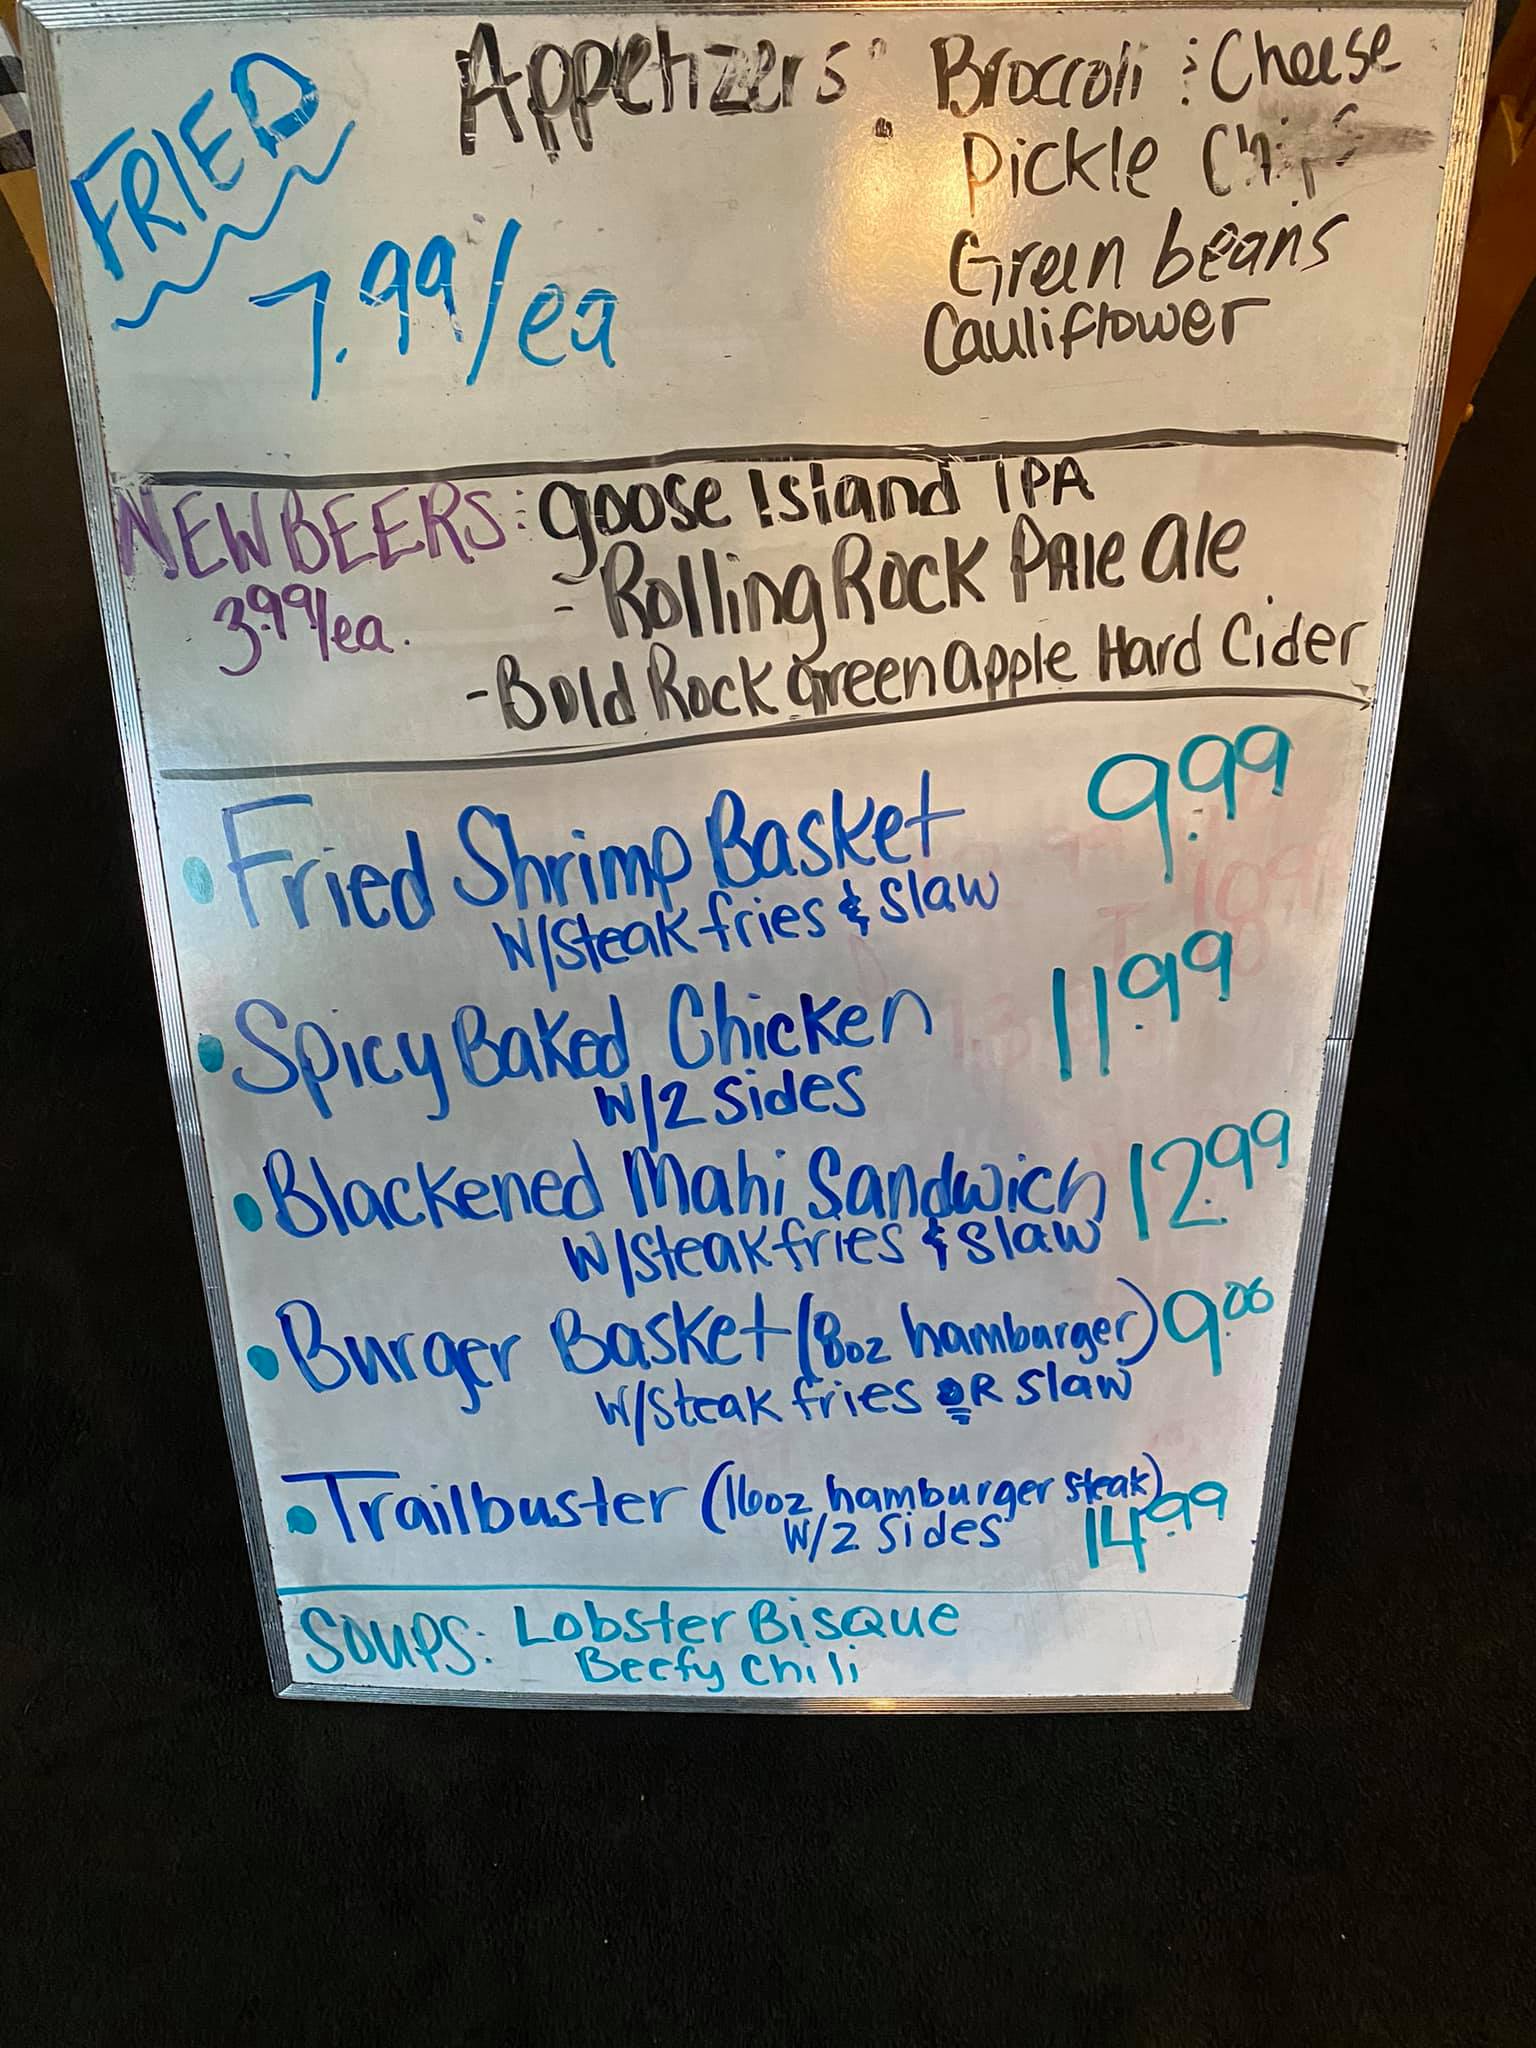 FRIED
Appetizers: Broccoli & Cheese
Pickle Chips
7.99/ea
Green beans
Cauliflower
NEW BEERS: Goose Island IPA
3.99/ea.
- Rolling Rock Pale Ale
- Bold Rock Green Apple Hard Cider
• Fried Shrimp Basket 9.99
W/Steak fries & Slaw
• Spicy Baked Chicken 11.99
W/2 Sides
• Blackened Mahi Sandwich 12.99
W/Steak fries & Slaw
• Burger Basket (8oz hamburger) 9.00
W/Steak fries OR Slaw
• Trailbuster (16oz hamburger steak) 14.99
W/2 Sides
Soups: Lobster Bisque
Beefy Chili